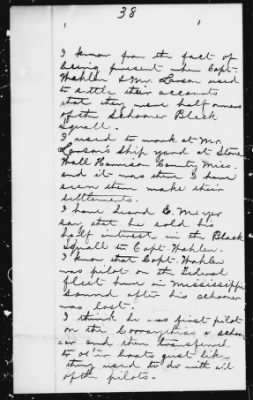 38
I know from the fact of
being present when Capt.
Wahlen & Mr. Larson used
to settle their accounts
that they were half owners
of the Schooner Black
Squall.
I used to work at Mr.
Larson's Ship yard at Stone
Wall Harrison County, Miss.
and it was there I have
seen them make their
settlements.
I have heard C. Meyer
say that he sold his
half interest in the Black
Squall to Capt. Wahlen.
I know that Capt. Wahlen
was pilot on the Federal
fleet here in Mississippi
Sound after his schooner
was lost.
I think he was first pilot
on the a schoon
er and then transferred
to other boats just like
they used to do with all
of the pilots.